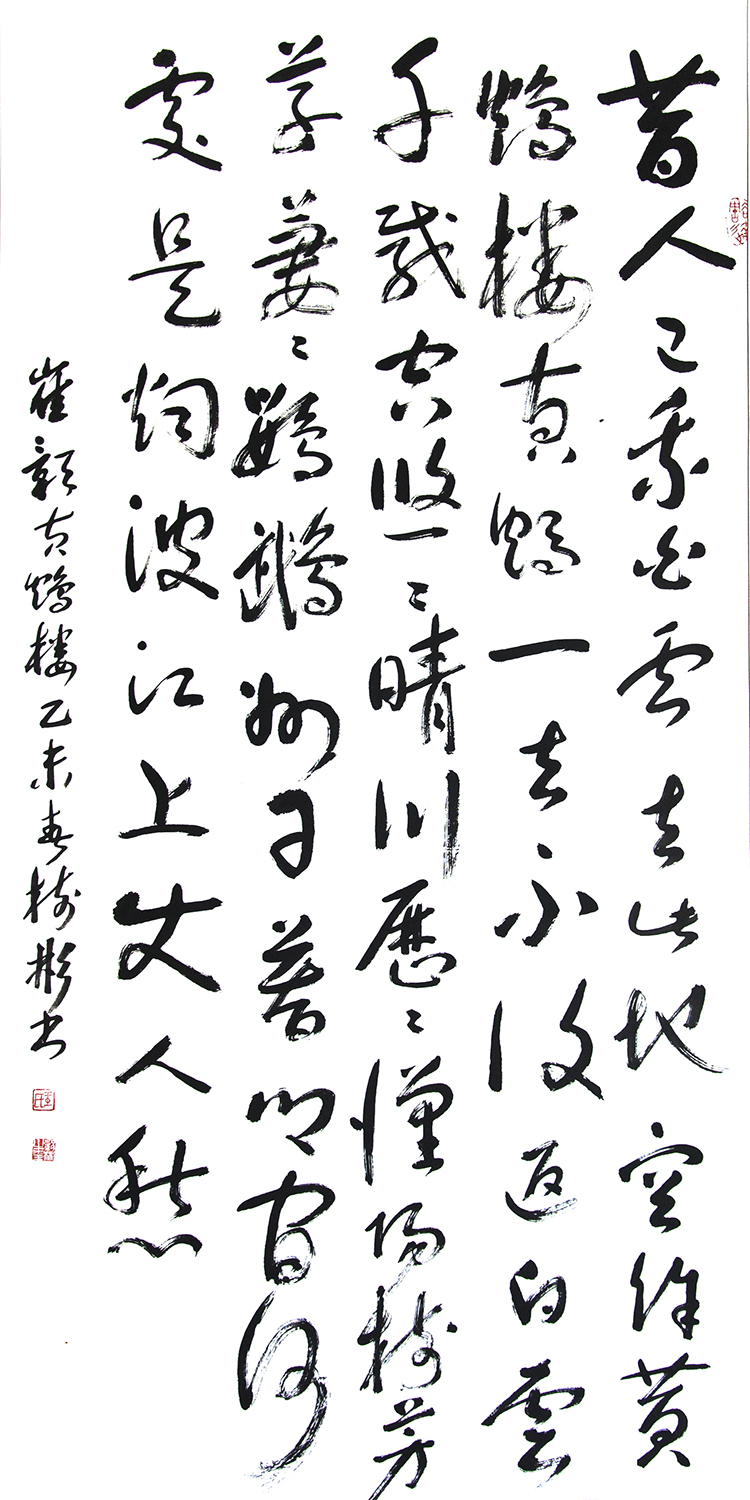 昔人已乘白雲去此地空餘黃
鶴樓黃鶴一去不復返白雲
千載空悠々晴川歷々漢陽樹芳
草萋々鸚鵡洲日暮鄉關何
處是烟波江上使人愁
崔顥黃鶴樓乙未春樹彬書